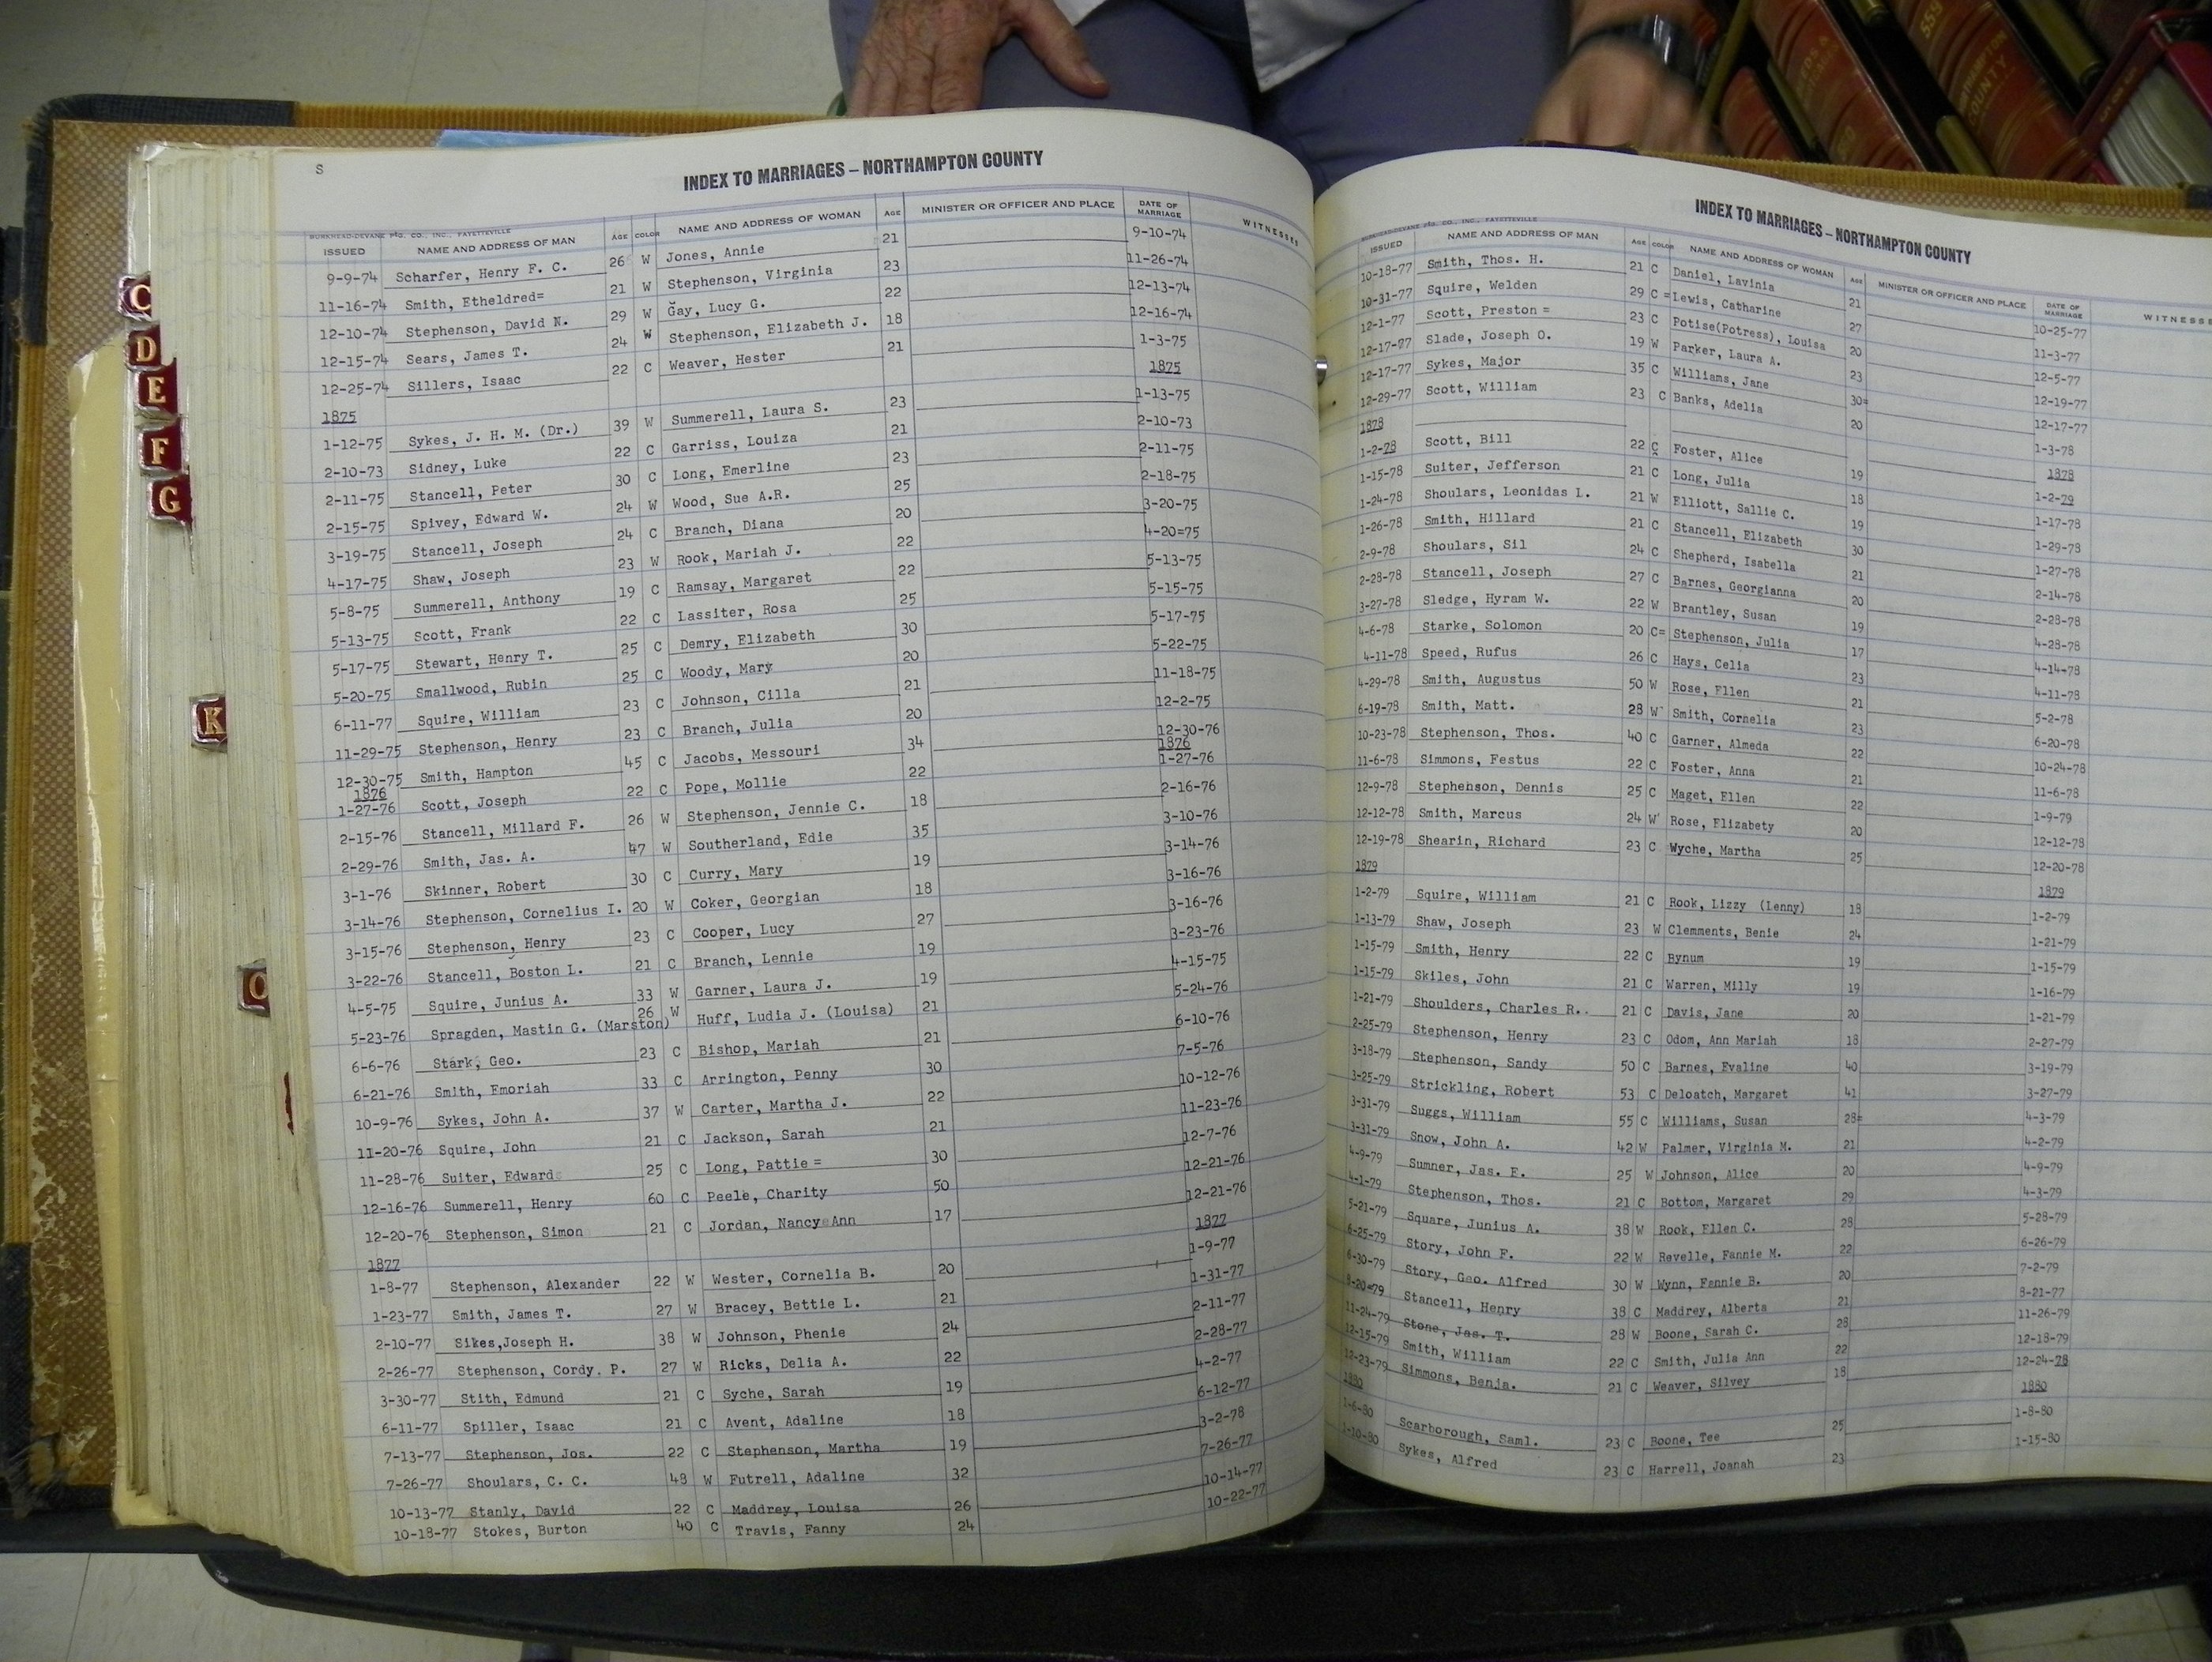 S
INDEX TO MARRIAGES – NORTHAMPTON COUNTY
BURKHEAD-DEVANE P'T'G. CO., INC., FAYETTEVILLE
ISSUED NAME AND ADDRESS OF MAN AGE COLOR NAME AND ADDRESS OF WOMAN AGE MINISTER OR OFFICER AND PLACE DATE OF MARRIAGE WITNESSES
9-9-74 Scharfer, Henry F. C. 26 W Jones, Annie 21 9-10-74
11-16-74 Smith, Etheldred= 21 W Stephenson, Virginia 23 11-26-74
12-10-74 Stephenson, David N. 29 W Gay, Lucy G. 22 12-13-74
12-15-74 Sears, James T. 24 W Stephenson, Elizabeth J. 18 12-16-74
12-25-74 Sillers, Isaac 22 C Weaver, Hester 21 1-3-75
1875 1875
1-12-75 Sykes, J. H. M. (Dr.) 39 W Summerell, Laura S. 23 1-13-75
2-10-73 Sidney, Luke 22 C Garriss, Louiza 21 2-10-73
2-11-75 Stancell, Peter 30 C Long, Emerline 23 2-11-75
2-15-75 Spivey, Edward W. 24 W Wood, Sue A.R. 25 2-18-75
3-19-75 Stancell, Joseph 24 C Branch, Diana 20 3-20-75
4-17-75 Shaw, Joseph 23 W Rook, Mariah J. 22 4-20=75
5-8-75 Summerell, Anthony 19 C Ramsay, Margaret 22 5-13-75
5-13-75 Scott, Frank 22 C Lassiter, Rosa 25 5-15-75
5-17-75 Stewart, Henry T. 25 C Demry, Elizabeth 30 5-17-75
5-20-75 Smallwood, Rubin 25 C Woody, Mary 20 5-22-75
6-11-77 Squire, William 23 C Johnson, Cilla 21 11-18-75
11-29-75 Stephenson, Henry 23 C Branch, Julia 20 12-2-75
12-30-75 Smith, Hampton 45 C Jacobs, Messouri 34 12-30-76
1876 1876
1-27-76 Scott, Joseph 22 C Pope, Mollie 22 1-27-76
2-15-76 Stancell, Millard F. 26 W Stephenson, Jennie C. 18 2-16-76
2-29-76 Smith, Jas. A. 47 W Southerland, Edie 35 3-10-76
3-1-76 Skinner, Robert 30 C Curry, Mary 19 3-14-76
3-14-76 Stephenson, Cornelius I. 20 W Coker, Georgian 18 3-16-76
3-15-76 Stephenson, Henry 23 C Cooper, Lucy 27 3-16-76
3-22-76 Stancell, Boston L. 21 C Branch, Lennie 19 3-23-76
4-5-75 Squire, Junius A. 33 W Garner, Laura J. 19 4-15-75
5-23-76 Spragden, Mastin G. (Marston) 26 W Huff, Ludia J. (Louisa) 21 5-24-76
6-6-76 Stark, Geo. 23 C Bishop, Mariah 21 6-10-76
6-21-76 Smith, Emoriah 33 C Arrington, Penny 30 7-5-76
10-9-76 Sykes, John A. 37 W Carter, Martha J. 22 10-12-76
11-20-76 Squire, John 21 C Jackson, Sarah 21 11-23-76
11-28-76 Suiter, Edward 25 C Long, Pattie = 30 12-7-76
12-16-76 Summerell, Henry 60 C Peele, Charity 50 12-21-76
12-20-76 Stephenson, Simon 21 C Jordan, Nancy Ann 17 12-21-76
1877 1877
1-8-77 Stephenson, Alexander 22 W Wester, Cornelia B. 20 1-9-77
1-23-77 Smith, James T. 27 W Bracey, Bettie L. 21 1-31-77
2-10-77 Sikes,Joseph H. 38 W Johnson, Phenie 24 2-11-77
2-26-77 Stephenson, Cordy. P. 27 W Ricks, Delia A. 22 2-28-77
3-30-77 Stith, Edmund 21 C Syche, Sarah 19 4-2-77
6-11-77 Spiller, Isaac 21 C Avent, Adaline 18 6-12-77
7-13-77 Stephenson, Jos. 22 C Stephenson, Martha 19 3-2-78
7-26-77 Shoulars, C. C. 48 W Futrell, Adaline 32 7-26-77
10-13-77 Stanly, David 22 C Maddrey, Louisa 26 10-14-77
10-18-77 Stokes, Burton 40 C Travis, Fanny 24 10-22-77
INDEX TO MARRIAGES – NORTHAMPTON COUNTY
BURKHEAD-DEVANE P'T'G. CO., INC., FAYETTEVILLE
ISSUED NAME AND ADDRESS OF MAN AGE COLOR NAME AND ADDRESS OF WOMAN AGE MINISTER OR OFFICER AND PLACE DATE OF MARRIAGE WITNESSE
10-18-77 Smith, Thos. H. 21 C Daniel, Lavinia 21 10-25-77
10-31-77 Squire, Welden 29 C = Lewis, Catharine 27 11-3-77
12-1-77 Scott, Preston = 23 C Potise(Potress), Louisa 20 12-5-77
12-17-77 Slade, Joseph O. 19 W Parker, Laura A. 23 12-19-77
12-17-77 Sykes, Major 35 C Williams, Jane 30= 12-17-77
12-29-77 Scott, William 23 C Banks, Adelia 20 1-3-78
1878 1878
1-2-78 Scott, Bill 22 C Foster, Alice 19 1-2-79
1-15-78 Suiter, Jefferson 21 C Long, Julia 18 1-17-78
1-24-78 Shoulars, Leonidas L. 21 W Elliott, Sallie C. 19 1-29-78
1-26-78 Smith, Hillard 21 C Stancell, Elizabeth 30 1-27-78
2-9-78 Shoulars, Sil 24 C Shepherd, Isabella 21 2-14-78
2-28-78 Stancell, Joseph 27 C Barnes, Georgianna 20 2-28-78
3-27-78 Sledge, Hyram W. 22 W Brantley, Susan 19 4-28-78
4-6-78 Starke, Solomon 20 C= Stephenson, Julia 17 4-14-78
4-11-78 Speed, Rufus 26 C Hays, Celia 23 4-11-78
4-29-78 Smith, Augustus 50 W Rose, Ellen 21 5-2-78
6-19-78 Smith, Matt. 28 W Smith, Cornelia 23 6-20-78
10-23-78 Stephenson, Thos. 40 C Garner, Almeda 22 10-24-78
11-6-78 Simmons, Festus 22 C Foster, Anna 21 11-6-78
12-9-78 Stephenson, Dennis 25 C Maget, Ellen 22 1-9-79
12-12-78 Smith, Marcus 24 W Rose, Elizabety 20 12-12-78
12-19-78 Shearin, Richard 23 C Wyche, Martha 25 12-20-78
1879 1879
1-2-79 Squire, William 21 C Rook, Lizzy (Lenny) 18 1-2-79
1-13-79 Shaw, Joseph 23 W Clemments, Benie 24 1-21-79
1-15-79 Smith, Henry 22 C Bynum 19 1-15-79
1-15-79 Skiles, John 21 C Warren, Milly 19 1-16-79
1-21-79 Shoulders, Charles R.. 21 C Davis, Jane 20 1-21-79
2-25-79 Stephenson, Henry 23 C Odom, Ann Mariah 18 2-27-79
3-18-79 Stephenson, Sandy 50 C Barnes, Evaline 40 3-19-79
3-25-79 Strickling, Robert 53 C Deloatch, Margaret 41 3-27-79
3-31-79 Suggs, William 55 C Williams, Susan 28= 4-3-79
3-31-79 Snow, John A. 42 W Palmer, Virginia M. 21 4-2-79
4-9-79 Sumner, Jas. E. 25 W Johnson, Alice 20 4-9-79
4-1-79 Stephenson, Thos. 21 C Bottom, Margaret 29 4-3-79
5-21-79 Square, Junius A. 38 W Rook, Ellen C. 28 5-28-79
6-25-79 Story, John F. 22 W Revelle, Fannie M. 22 6-26-79
6-30-79 Story, Geo. Alfred 30 W Wynn, Fannie B. 20 7-2-79
8-20=79 Stancell, Henry 38 C Maddrey, Alberta 21 8-21-77
11-24-79 Stone, Jas. T. 28 W Boone, Sarah C. 28 11-26-79
12-15-79 Smith, William 22 C Smith, Julia Ann 22 12-18-79
12-23-79 Simmons, Benja. 21 C Weaver, Silvey 18 12-24-78
1880 1880
1-6-80 Scarborough, Saml. 23 C Boone, Tee 25 1-8-80
1-10-80 Sykes, Alfred 23 C Harrell, Joanah 23 1-15-80
C
D
E
F
G
K
O
559
NORTHAMPTON
COUNTY